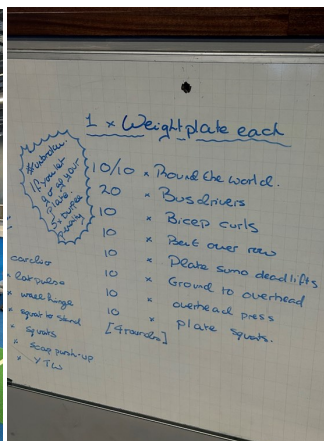 1 x Weightplate each
#unbroken.
If you let
go of your
plate.
5x burpee
penalty
10/10 x Round the world.
20 x Busdrivers
10 x Bicep curls
10 x Bent over row
10 x Plate sumo deadlifts
10 x Ground to overhead
10 x overhead press
10 x plate squats.
[4 rounds]
cardio
* lat pulse
* wall lunge
* squat to stand
* squats
* scap push-up
* YTW